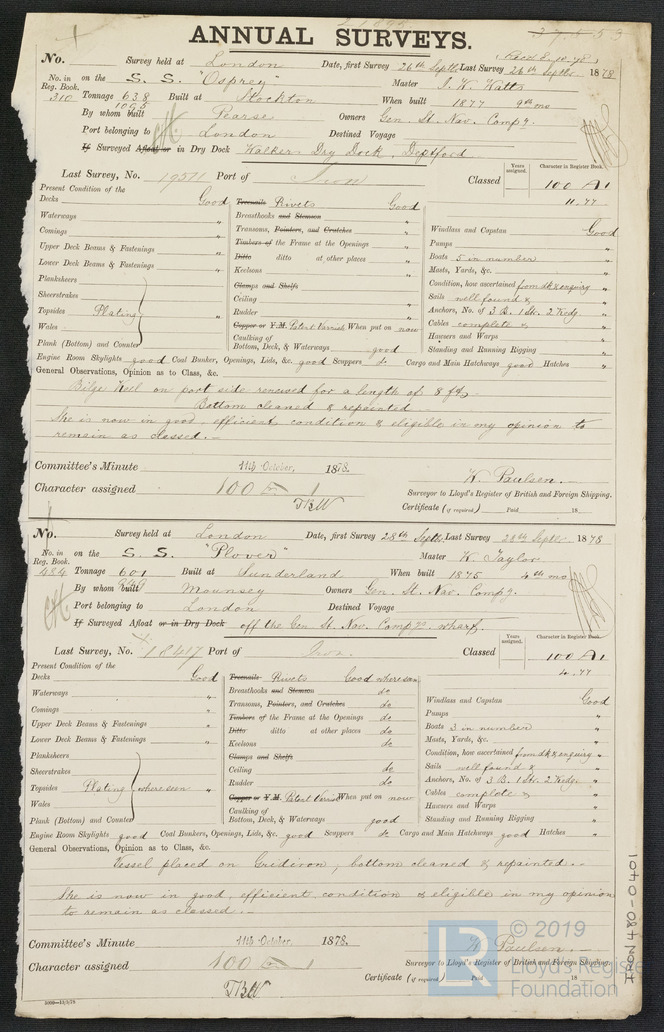 ANNUAL SURVEYS.
No. Survey held at London Date, first Survey 26th Septr. Last Survey 26th Septr 1878
No. in Reg. Book. 310 on the S. S. "Osprey" Master J. W. Watts
Tonnage 638 Built at Stockton When built 1877 9th mo
1095
By whom built Pearse Owners Gen. St. Nav. Compy.
Port belonging to London Destined Voyage
If Surveyed Afloat or in Dry Dock Walkers Dry Dock, Deptford
Years assigned. Character in Register Book.
Last Survey, No. 19571 Port of Iron Classed 100 A1
11.77
Present Condition of the
Decks Good
Waterways "
Comings "
Upper Deck Beams & Fastenings "
Lower Deck Beams & Fastenings "
Planksheers
Sheerstrakes
Topsides Plating "
Wales
Plank (Bottom) and Counter
Treenails Rivets Good
Breasthooks and Stemson "
Transoms, Pointers, and Crutches "
Timbers of the Frame at the Openings "
Ditto ditto at other places "
Keelsons "
Clamps and Shelfs
Ceiling "
Rudder "
Copper or Y.M. Patent Varnish When put on now
Caulking of
Bottom, Deck, & Waterways good
Windlass and Capstan Good
Pumps "
Boats 5 in number "
Masts, Yards, &c. "
Condition, how ascertained from dk & enquiry
Sails well found & "
Anchors, No. of 3 B. 1 St. 2 Kedg.
Cables complete "
Hawsers and Warps "
Standing and Running Rigging "
Engine Room Skylights good Coal Bunker, Openings, Lids, &c. good Scuppers do Cargo and Main Hatchways good Hatches "
General Observations, Opinion as to Class, &c.
Bilge Keel on port side renewed for a length of 8 ft.
Bottom cleaned & repainted
She is now in good, efficient condition & eligible in my opinion to
remain as classed.
Committee's Minute 11th October, 1878.
Character assigned 100 A 1
W. Paulsen.
Surveyor to Lloyd's Register of British and Foreign Shipping.
Certificate (if required) Paid 18
TBW
No. Survey held at London Date, first Survey 28th Septr. Last Survey 28th Septr 1878
No. in Reg. Book. 484 on the S. S. "Plover" Master W. Taylor
Tonnage 601 Built at Sunderland When built 1875 4th mo
949
By whom built Mounsey Owners Gen. St. Nav. Compy.
Port belonging to London Destined Voyage
If Surveyed Afloat or in Dry Dock off the Gen St. Nav. Compys. wharf.
Years assigned. Character in Register Book.
Last Survey, No. 18417 Port of Iron. Classed 100 A1
4.77
Present Condition of the
Decks Good
Waterways "
Comings "
Upper Deck Beams & Fastenings "
Lower Deck Beams & Fastenings "
Planksheers
Sheerstrakes
Topsides Plating where seen "
Wales
Plank (Bottom) and Counter
Treenails Rivets Good where seen
Breasthooks and Stemson do
Transoms, Pointers, and Crutches do
Timbers of the Frame at the Openings do
Ditto ditto at other places do
Keelsons do
Clamps and Shelfs
Ceiling do
Rudder do
Copper or Y.M. Patent Varnish When put on now
Caulking of
Bottom, Deck, & Waterways good
Windlass and Capstan Good
Pumps "
Boats 3 in number "
Masts, Yards, &c. "
Condition, how ascertained from dk & enquiry
Sails well found & "
Anchors, No. of 3 B. 1 St. 2 Kedge "
Cables complete "
Hawsers and Warps "
Standing and Running Rigging "
Engine Room Skylights good Coal Bunkers, Openings, Lids, &c. good Scuppers do Cargo and Main Hatchways good Hatches "
General Observations, Opinion as to Class, &c.
Vessel placed on Gridiron, bottom cleaned & repainted.
She is now in good, efficient condition & eligible in my opinion
to remain as classed.
Committee's Minute 11th October, 1878.
Character assigned 100 A 1
W. Paulsen.
Surveyor to Lloyd's Register of British and Foreign Shipping.
Certificate (if required) Paid 18
TBW
IRON 480-0401
LR © 2019
Lloyd's Register
Foundation